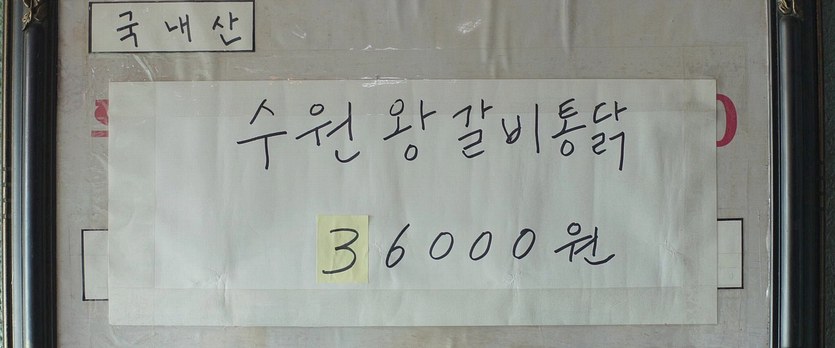 국내산
수원 왕갈비통닭
36000원